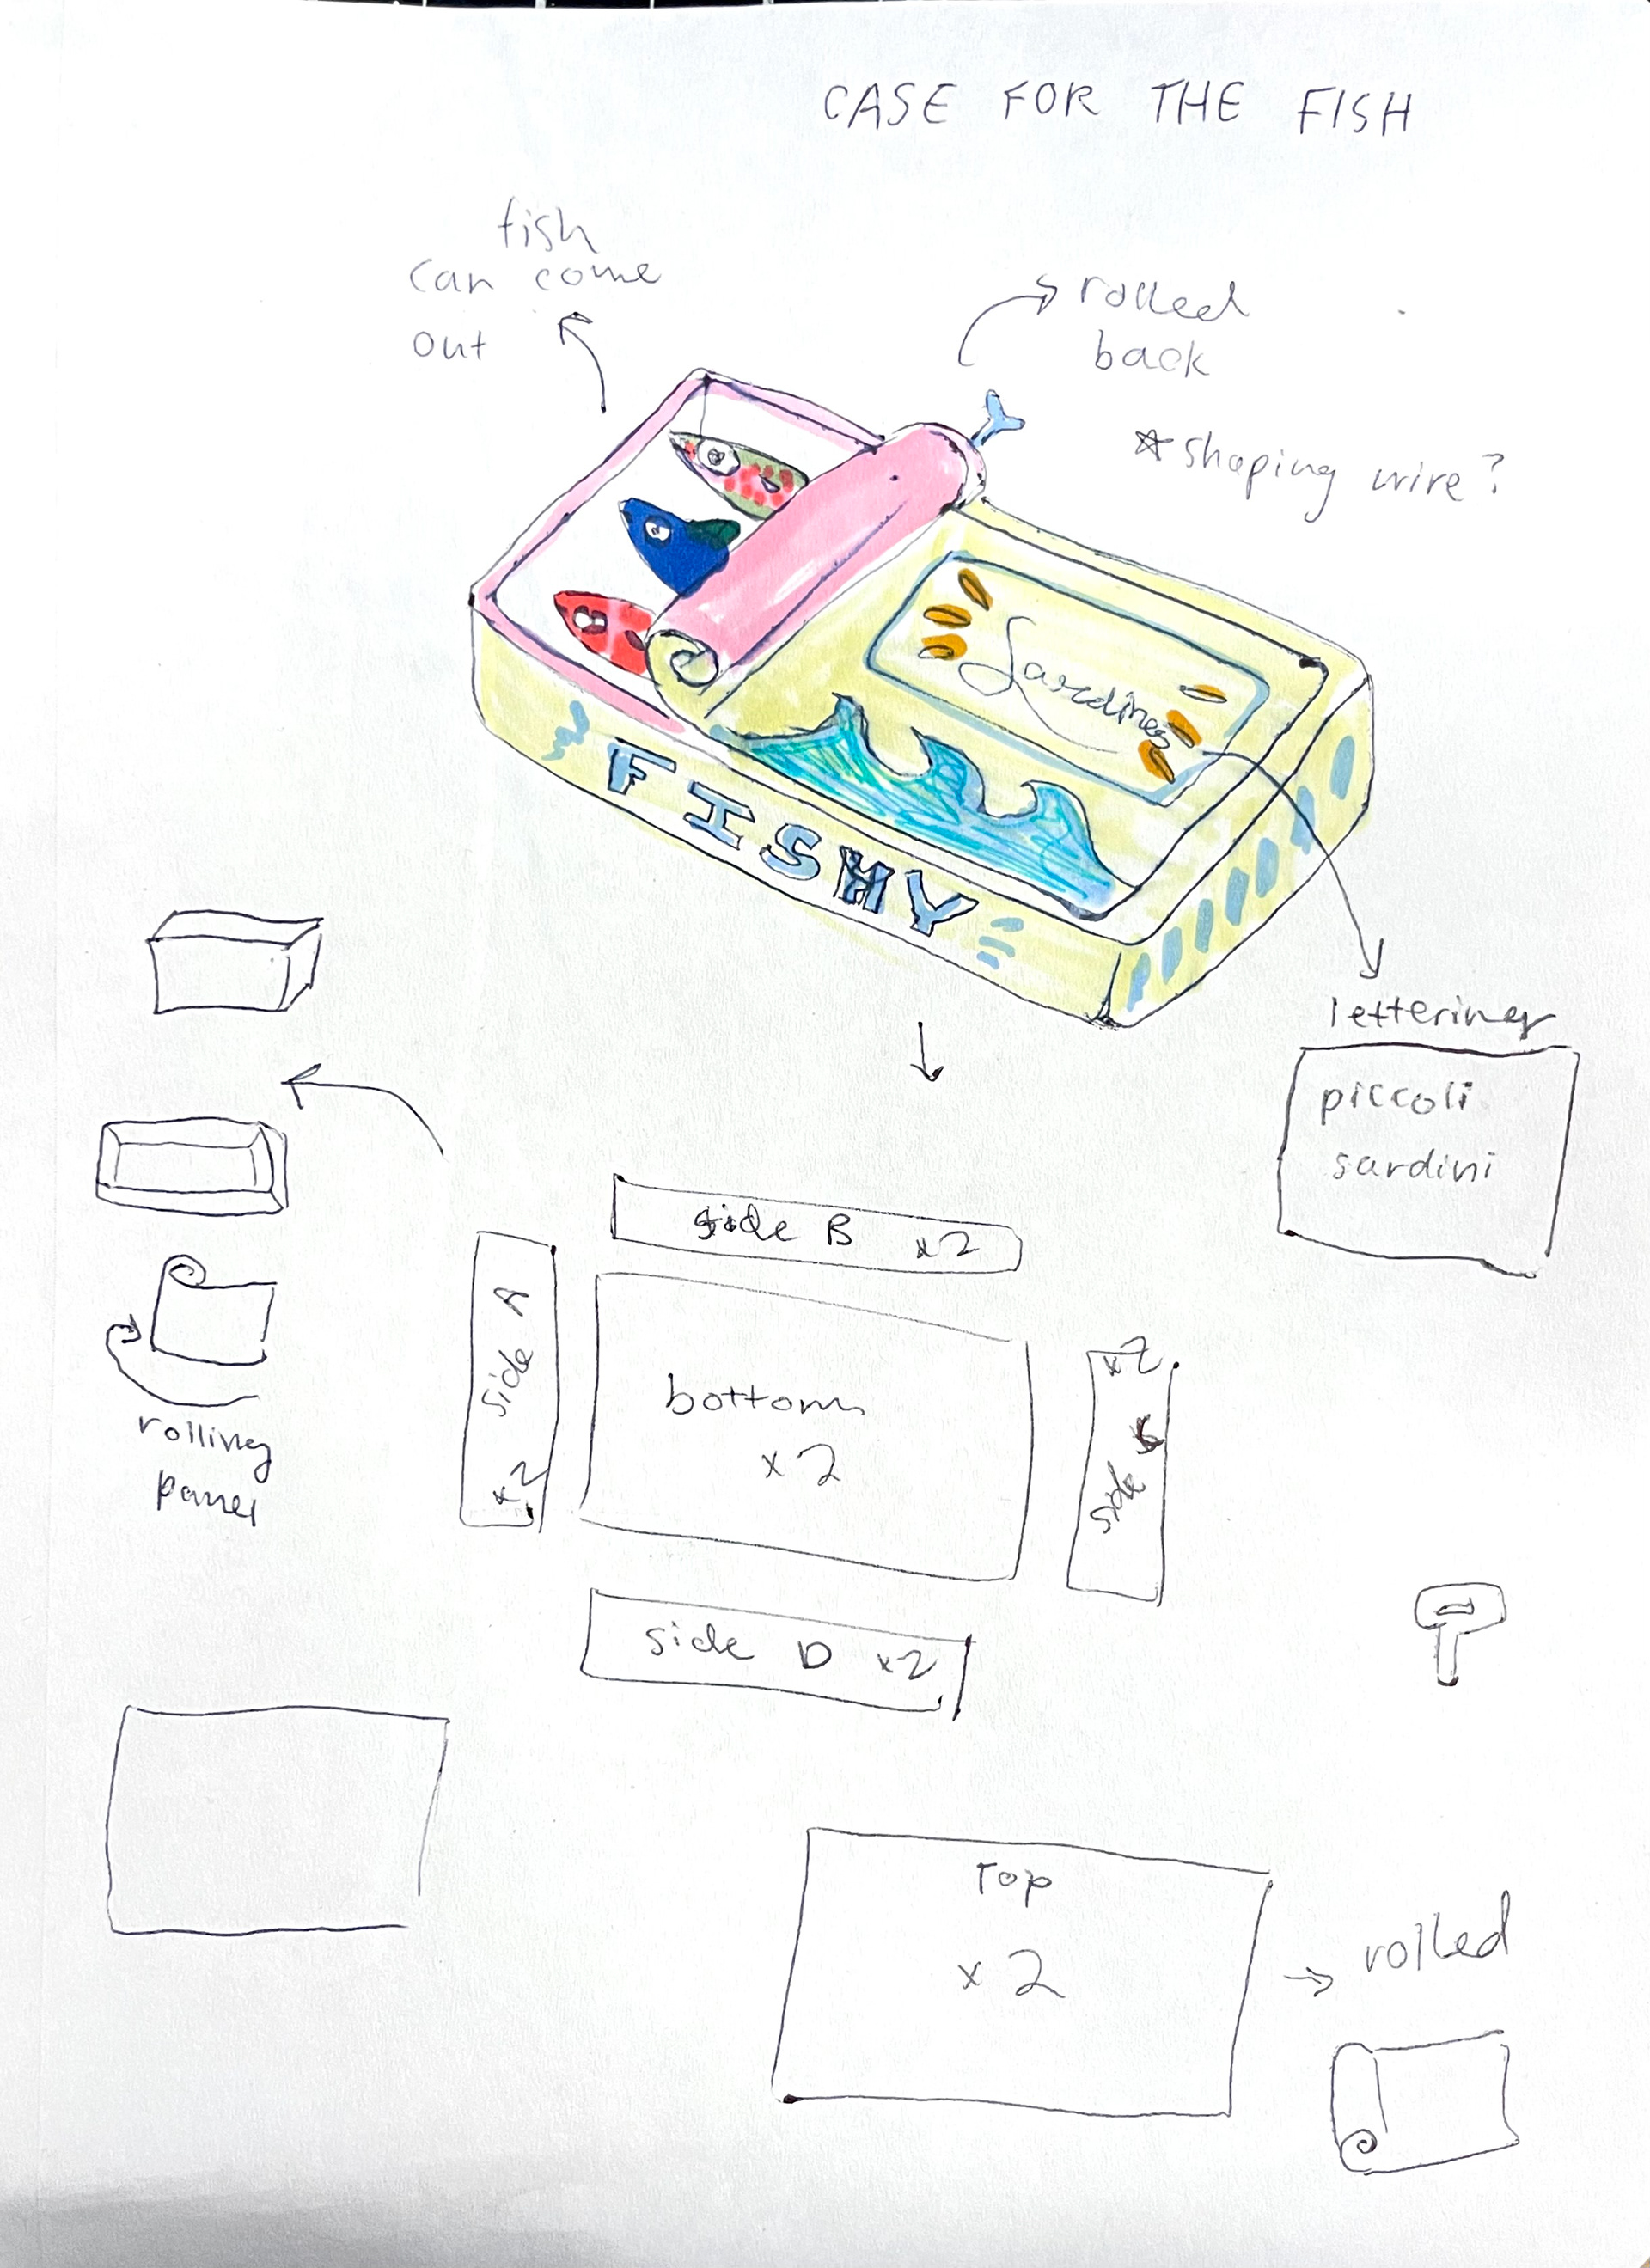 CASE FOR THE FISH
fish
can come
out
rolled
back
☆ shaping wire?
Sardines
FISHY
lettering
piccoli
sardini
side B x2
side A x2
bottom
x 2
side x2
side D x2
rolling
panel
Top
x 2
→ rolled